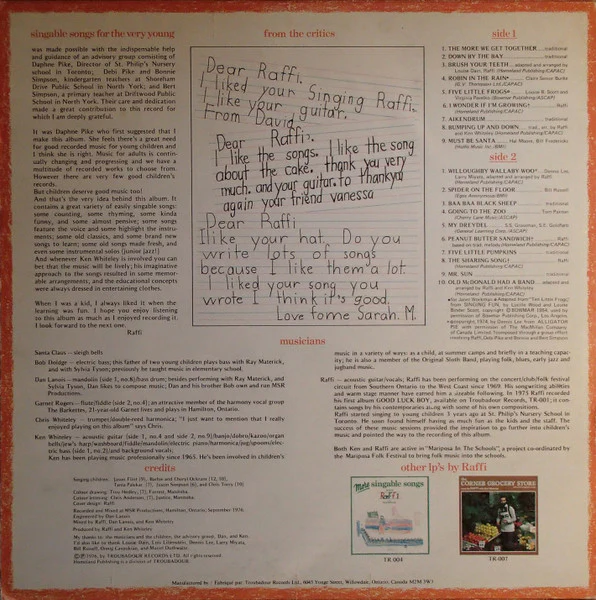 singable songs for the very young
was made possible with the indispensable help
and guidance of an advisory group consisting of
Daphne Pike, Director of St. Philip's Nursery
school in Toronto; Debi Pike and Bonnie
Simpson, kindergarten teachers at Shoreham
Drive Public School in North York; and Bert
Simpson, a primary teacher at Driftwood Public
School in North York. Their care and dedication
made a great contribution to this record for
which I am deeply grateful.
It was Daphne Pike who first suggested that I
make this album. She feels there's a great need
for good recorded music for young children and
I think she is right. Music for adults is conti-
nually changing and progressing and we have a
multitude of recorded works to choose from.
However there are very few good children's
records.
But children deserve good music too!
And that's the very idea behind this album. It
contains a great variety of easily singable songs:
some counting, some rhyming, some kinda
funny, and some almost pensive; some songs
feature the voice and some highlight the instru-
ments; some old classics, and some brand new
songs to learn; some old songs made fresh, and
even some instrumental solos (junior jazz!)
And whenever Ken Whiteley is involved you can
bet that the music will be lively; his imaginative
approach to the songs resulted in some memor-
able arrangements, and the educational concepts
were always dressed in entertaining clothes.
When I was a kid, I always liked it when the
learning was fun. I hope you enjoy listening
to this album as much as I enjoyed recording it.
I look forward to the next one.
Raffi
from the critics
Dear Raffi.
I liked your Singing Raffi.
I like your guitar.
From David
Dear Raffi.
I like the songs. I like the song
about the cake. thank you very
much. and your guitar. to thankyou
again your friend vanessa
Dear Raffi
I like your hat. Do you
write lots of songs
because I like them a lot.
I liked your song you
wrote I think it's good.
Love fome Sarah. M.
side 1
1. THE MORE WE GET TOGETHER traditional
2. DOWN BY THE BAY traditional
3. BRUSH YOUR TEETH adapted and arranged by
Louise Dain, Raffi (Homeland Publishing/CAPAC)
4. ROBIN IN THE RAIN* Claire Senior Burke
(G.V. Thompson Ltd./CAPAC)
5. FIVE LITTLE FROGS* Louise B. Scott and
Virginia Pavelko (Bowmar/ASCAP)
6. I WONDER IF I'M GROWING† Raffi
(Homeland Publishing/CAPAC)
7. AIKENDRUM traditional
8. BUMPING UP AND DOWN trad., arr. by Raffi
and Ken Whiteley (Homeland Publishing/CAPAC)
9. MUST BE SANTA Hal Moore, Bill Fredericks
side 2
1. WILLOUGHBY WALLABY WOO° Dennis Lee,
Larry Miyata, adapted and arranged by Raffi
(Homeland Publishing/CAPAC)
2. SPIDER ON THE FLOOR Bill Russell
3. BAA BAA BLACK SHEEP traditional
4. GOING TO THE ZOO Tom Paxton
(Cherry Lane Music/ASCAP)
5. MY DREYDEL S.S. Grossman, S.E. Goldfarb
6. PEANUT BUTTER SANDWICH† Raffi
based on trad. melody (Homeland Publishing/CAPAC)
7. FIVE LITTLE PUMPKINS traditional
8. THE SHARING SONG† Raffi
(Homeland Publishing/CAPAC)
9. MR. SUN traditional
10. OLD McDONALD HAD A BAND adapted and
arranged by Raffi and Ken Whiteley
(Homeland Publishing/CAPAC)
musicians
Santa Claus — sleigh bells
Bob Doidge — electric bass; this father of two young children plays bass with Ray Materick,
and with Sylvia Tyson; previously he taught music in elementary school.
Dan Lanois — mandolin (side 1, no.8), bass drum; besides performing with Ray Materick, and
Sylvia Tyson, Dan likes to compose music; Dan and his brother Bob own and run MSR
Productions.
Garnet Rogers — flute/fiddle (side 2, no.4); an attractive member of the harmony vocal group
The Barbettes, 21-year-old Garnet lives and plays in Hamilton, Ontario.
Chris Whiteley — trumpet/double-reed harmonica; "I just want to mention that I really
enjoyed playing on this album" says Chris.
Ken Whiteley — acoustic guitar (side 1, no.4 and side 2, no.9)/banjo/ukulele/kazoo/organ
Ken has been playing music professionally since 1965. He's been involved in children's
music in a variety of ways: as a child, at summer camps and briefly in a teaching capac-
ity; he is also a member of the Original Sloth Band, playing folk, blues, early jazz and
jugband music.
Raffi — acoustic guitar/vocals; Raffi has been performing on the concert/club/folk festival
circuit from Southern Ontario to the West Coast since 1969. His songwriting abilities
and warm stage manner have earned him a sizeable following. In 1975 Raffi recorded
his first album GOOD LUCK BOY, available on Troubadour Records, TR-001; it con-
tains songs by his contemporaries along with some of his own compositions.
Raffi started singing to young children 3 years ago at St. Philip's Nursery School in
Toronto. He soon found himself having as much fun as the kids and the staff. The
success of these music sessions provided the inspiration to go further into children's
music and pointed the way to the recording of this album.
Both Ken and Raffi are active in "Mariposa In The Schools", a project co-ordinated by
the Mariposa Folk Festival to bring folk music into the schools.
credits
Recorded and Mixed at MSR Productions, Hamilton, Ontario, September 1976
Engineered by Dan Lanois
Mixed by Raffi, Dan Lanois, and Ken Whiteley
Produced by Raffi and Ken Whiteley
other lp's by Raffi
More
singable songs
Raffi
TR 004
the
CORNER GROCERY STORE
TR-007
Manufactured by / Fabriqué par: Troubadour Records Ltd., 6043 Yonge Street, Willowdale, Ontario, Canada M2M 3W3